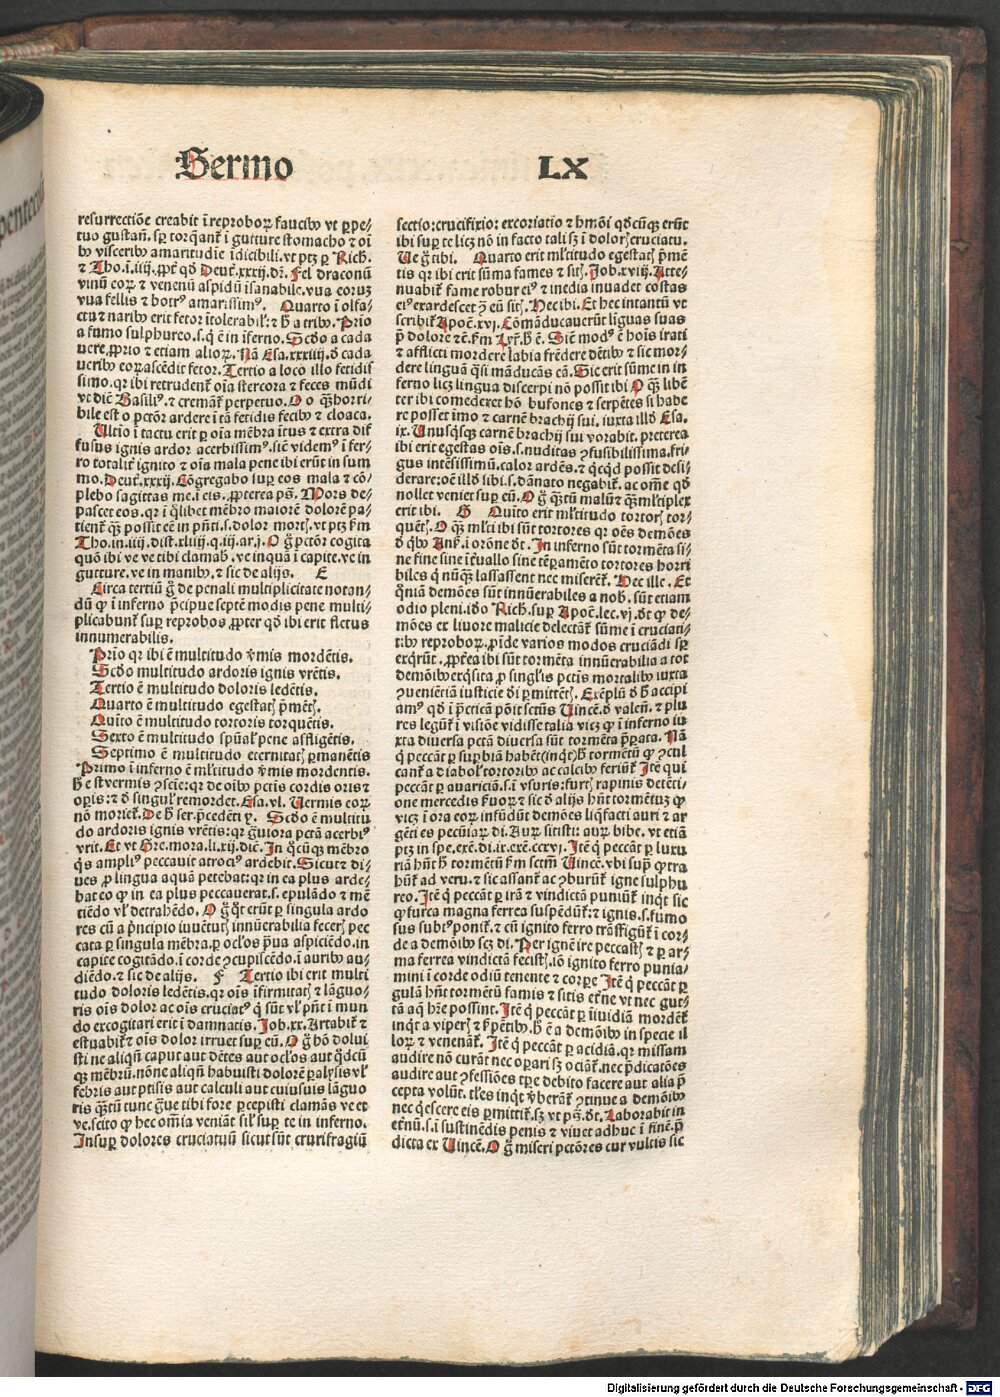 Sermo LX
resurrectiōe creabit ī reproboꝝ faucibꝰ vt ꝑpe⸗
tuo gustan̄. sꝑ torq̄ant̄ ī gutture stomacho ⁊ oī
bꝰ visceribꝰ amaritudīe īdicibili. vt ptꝫ ꝑ Rich.
⁊ Tho. ī. iiij. ꝓpt̄ qđ Deut̄. xxxij. dr̄. Fel draconū
vinū eoꝝ ⁊ venenū aspidū īsanabile. vua eoruꝫ
vua fellis ⁊ botrꝰ amarissimꝰ. Quarto ī olfa⸗
ctu ⁊ naribꝰ erit fetor ītolerabil': ⁊ h̄ a tribꝰ. Prīo
a fumo sulphureo. s. q̄ ē in īferno. Scđo a cada
uere. ꝓprio ⁊ etiam alioꝝ. Nā Esa. xxxiiij. đ cada
ueribꝰ eoꝝ ascēdit fetor. Tertio a loco illo fetidis
simo. qꝛ ibi retrudent̄ oīa stercora ⁊ feces mūdi
vt dic̄ Basiliꝰ. ⁊ cremāt̄ perpetuo. O o q̄ꝫ horri⸗
bile est o pctōr ardere ī tā fetidis fecibꝰ ⁊ cloaca.
Ultīo ī tactu erit ꝑ oīa mēbra ītus ⁊ extra dif
fusus ignis ardor acerbissimꝰ. sic̄ videmꝰ ī fer⸗
ro totalit̄ ignito ⁊ oīa mala pene ibi erūt in sum
mo. Deut̄. xxxij. Cōgregabo suꝑ eos mala ⁊ cō⸗
plebo sagittas me. ī eis. ꝓpterea ps̄. Mors de⸗
pascet eos. qꝛ ī q̄libet mēbro maiorē dolorē pa⸗
tient̄ q̄ꝫ possit eē in pn̄ti. s. dolor mort. vt ptꝫ fm̄
Tho. in. iiij. dist. xliiij. q. iij. ar. j. O g̊ pctōr cogita
quō ibi ve ve tibi clamab. ve inquā ī capite. ve in
gutture. ve in manibꝰ. ⁊ sic de alijs. E
Circa tertiū g̊ de penali multiplicitate notan⸗
dū ꝙ ī inferno p̄cipue septē modis pene multi⸗
plicabunt̄ suꝑ reprobos ꝓpter qđ ibi erit fletus
innumerabilis.
Prīo qꝛ ibi ē multitudo v̄mis mordētis.
Scđo multitudo ardoris ignis vrētis.
Tertio ē multitudo doloris ledētis.
Quarto ē multitudo egestat p̄mēt.
Quīto ē multitudo tortoris torquētis.
Sexto ē multitudo spūal' pene affligētis.
Septimo ē multitudo eternitat ꝑmanētis
Primo ī inferno ē ml̄titudo v̄mis mordentis.
h̄ ē st vermis ꝯscīe: qꝛ de oībꝰ pctīs cordis oris ⁊
oꝑis: ⁊ đ singul' remordet. Esa. vl. Uermis eoꝝ
nō moriet̄. De h̄ ser. p̄cedēti y. Scđo ē multitu
do ardoris ignis vrētis: qꝛ g̊uiora pctā acerbiꝰ
vrit. Et vt Gre. mora. li. xij. dic̄. In q̄cūqꝫ mēbro
q̄s ampliꝰ peccauit atrociꝰ ardebit. Sicut ⁊ di⸗
ues ꝓ lingua aquā petebat: qꝛ in ea plus arde⸗
bat eo ꝙ in ea plus peccauerat. s. epulādo ⁊ mē
tiēdo vl' detrahēdo. O g̊ q̄t erūt ꝑ singula ardo
res cū a p̄ncipio iuuētut innūerabilia fecer̄ pec
cata ꝑ singula mēbra. ꝑ oclōs p̄ua aspiciēdo. in
capite cogitādo. ī corde ꝯcupiscēdo. ī auribꝰ au⸗
diēdo. ⁊ sic de alijs. F Tertio ibi erit multi
tudo doloris ledētis. qꝛ oīs īfirmitat ⁊ lāguo⸗
ris oīs dolor ac oīs cruciatꝰ q̄ sūt vl' pn̄t ī mun
do excogitari erit ī damnatis. Job. xx. Artabit̄ ⁊
estuabit̄ ⁊ oīs dolor irruet suꝑ eū. O g̊ hō dolui
sti ne aliqn̄ caput aut dētes aut oclōs aut q̄dcū
qꝫ mēbrū. nōne aliqn̄ habuisti dolorē ꝑalysis vl'
febris aut ptisis aut calculi aut cuiusuis lāguo
ris q̄ꝫtū tunc g̊ue tibi fore ꝑcepisti clamās ve et
ve. scito ꝙ hec omīa veniāt sil' suꝑ te in inferno.
Insuꝑ dolores cruciatuū sicut sūt crurifragiū
sectio: crucifixio: excoriatio ⁊ hmōi qđcūqꝫ erūt
ibi suꝑ te licꝫ nō in facto tali sꝫ ī dolor cruciatu.
Ue g̊ tibi. Quarto erit ml̄titudo egestat p̄mē
tis qꝛ ibi erit sūma fames ⁊ sit. Job. xviij. Atte⸗
nuabit̄ fame robur eiꝰ ⁊ inedia inuadet costas
eiꝰ exardescet ꝯ eū sit. Hec ibi. Et hec intantū vt
scribit̄ Apoc̄. xvj. Cōmāducauerūt līguas suas
p̄ dolore ⁊c̄. fm̄ Lyr̄. h̄ ē. Sic̄ modꝰ ē hoīs irati
⁊ afflicti mordere labia frēdere dētibꝰ ⁊ sic mor⸗
dere linguā q̄si māducās eā. Sic erit sūme in in
ferno licꝫ lingua discerpi nō possit ibi O q̄ꝫ libē
ter ibi comederet hō bufones ⁊ serpētes si habe
re posset īmo ⁊ carnē brachij sui. iuxta illđ Esa.
ix. Unusq̄sqꝫ carnē brachij sui vorabit. preterea
ibi erit egestas oīs. s. nuditas ꝯfusibilissima. fri⸗
gus intēsissimū. calor ardēs. ⁊ q̄cqd possit desi⸗
derare: oē illđ sibi. s. dānato negabit̄. ac omīe qđ
nollet veniet suꝑ eū. O g̊ q̄ꝫtū malū ⁊ q̄ꝫ ml̄tiplex
erit ibi. G Quīto erit ml̄titudo tortor tor⸗
quēt. O q̄ꝫ ml̄ti ibi sūt tortores qꝛ oēs demōes
đ q̄bꝰ Ans̄. ī orōne đt. In inferno sūt tormēta si⸗
ne fine sine īt̄uallo sine tēꝑamēto tortores horri
biles q̄ nūq̄ꝫ lassassent nec miseret̄. Hec ille. Et
q̄niā demōes sūt innūerabiles a nob. sūt etiam
odio pleni. iđo Rich. suꝑ Apoc̄. lec. vj. đt ꝙ de⸗
mōes ex liuore malicie delectāt̄ sūme ī cruciati⸗
bꝰ reproboꝝ. ꝓīde varios modos cruciādi sꝑ
exq̄rūt. ꝓpt̄ea ibi sūt tormēta innūerabilia a tot
demōibꝰ exq̄sita ꝓ singlīs pctīs mortalibꝰ iuxta
ꝯueniētiā iusticie dī ꝑmittēt. Exēplū đ h̄ accipi
amꝰ qđ ī p̄eticēa pōit sctūs Uincē. đ valen̄. ⁊ plu
res legūt̄ ī visiōe vidisse talia vicꝫ ꝙ ī inferno iu
xta diuersa pctā diuersa sūt tormēta p̄ꝑata. Nā
q̄ peccāt̄ ꝑ suꝑbiā habēt (inq̄t) h̄ tormētū ꝙ ꝯcul
cant̄ a diabol' tortoribꝰ ac calcibꝰ feriūt̄ Itē qui
peccāt̄ ꝑ auariciā. s. ī vsuris: furt rapinis detēti⸗
one mercedis f̄uoꝝ ⁊ sic đ alijs hn̄t tormētuꝫ ꝙ
vicꝫ ī ora eoꝝ infūdūt demōes liq̄facti auri ⁊ ar
gēti es pecūiaꝝ dī. Auꝝ sitisti: auꝝ bibe. vt etiā
ptꝫ in spe. exē. dī. ix. exē. ccxvj. Itē q̄ peccāt̄ ꝑ luxu
riā hn̄t h̄ tormētū fm̄ sctm̄ Uincē. vbi suꝑ ꝙ tra
hūt̄ ad veru. ⁊ sic assant̄ ac ꝯburūt̄ igne sulphu
reo. Itē q̄ peccāt̄ ꝑ irā ⁊ vindictā puniūt̄ inq̄t sic
ꝙ furca magna ferrea suspēdūt̄: ⁊ ignis. s. fumo
sus subtꝰ ponit̄. ⁊ cū ignito ferro trāsfigūt̄ ī cor⸗
de a demōibꝰ scꝫ dī. Per ignē ire peccasti ⁊ ꝑ ar⸗
ma ferrea vindictā fecist. iō ignito ferro punia⸗
mini ī corde odiū tenente ⁊ corꝑe Itē q̄ peccāt̄ ꝑ
gulā hn̄t tormētū famis ⁊ sitis et̄ne vt nec gut⸗
tā aq̄ hr̄e possint. Itē q̄ peccāt̄ ꝑ īuidiam mordēt̄
inq̄t a viper ⁊ s̄pētibꝰ. h̄ ē a demōibꝰ in specie il
loꝝ ⁊ venenāt̄. Itē q̄ peccāt̄ ꝑ acidiā. qꝛ missam
audire nō curāt nec oꝑari sꝫ ociāt̄. nec p̄dicatōes
audire aut ꝯfessiōes tꝑe debito facere aut alia p̄
cepta volūt. tl̄es inq̄t v̄berāt̄ ꝯtinue a demōibꝰ
nec q̄escere eis ꝑmittit̄. sꝫ vt ps̄. đt. Laborabit in
et̄nū. s. ī sustinēdis penis ⁊ viuet adhuc ī finē. p̄
dicta ex Uincē. O g̊ miseri pctōres cur vultis sic
Digitalisierung gefördert durch die Deutsche Forschungsgemeinschaft - DFG